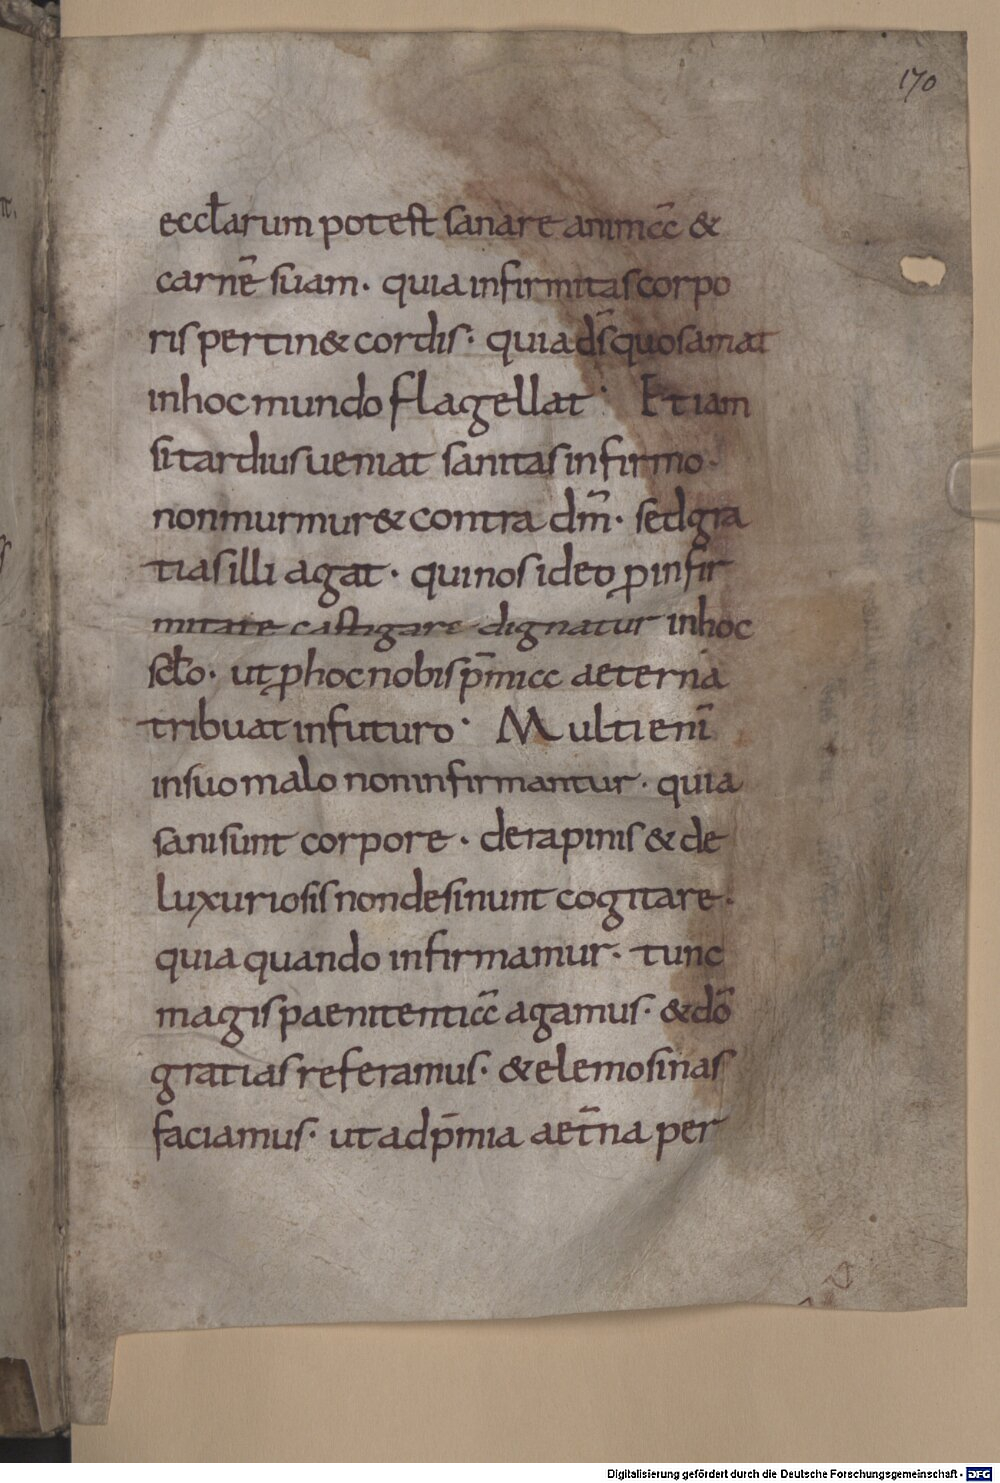 170
eccłarum potest sanare animā &
carnē suam· quia infirmitas corpo
ris pertin& cordis· quia ds̄ quos amat
in hoc mundo flagellat· Etiam
si tardius ueniat sanitas infirmo·
non murmur& contra dm̄· sed gra
tias illi agat· qui nos ideo ꝑ infir
mitate castigare dignatur in hoc
scło· ut ꝑ hoc nobis p̄mia aeterna
tribuat in futuro· Multi enī
in suo malo non infirmantur· quia
sani sunt corpore· de rapinis & de
luxuriosis non desinunt cogitare·
quia quando infirmamur· tunc
magis paenitentiā agamus· & dō
gratias referamus· & elemosinas
faciamus· ut ad p̄mia aet̄na per
Digitalisierung gefördert durch die Deutsche Forschungsgemeinschaft - DFG